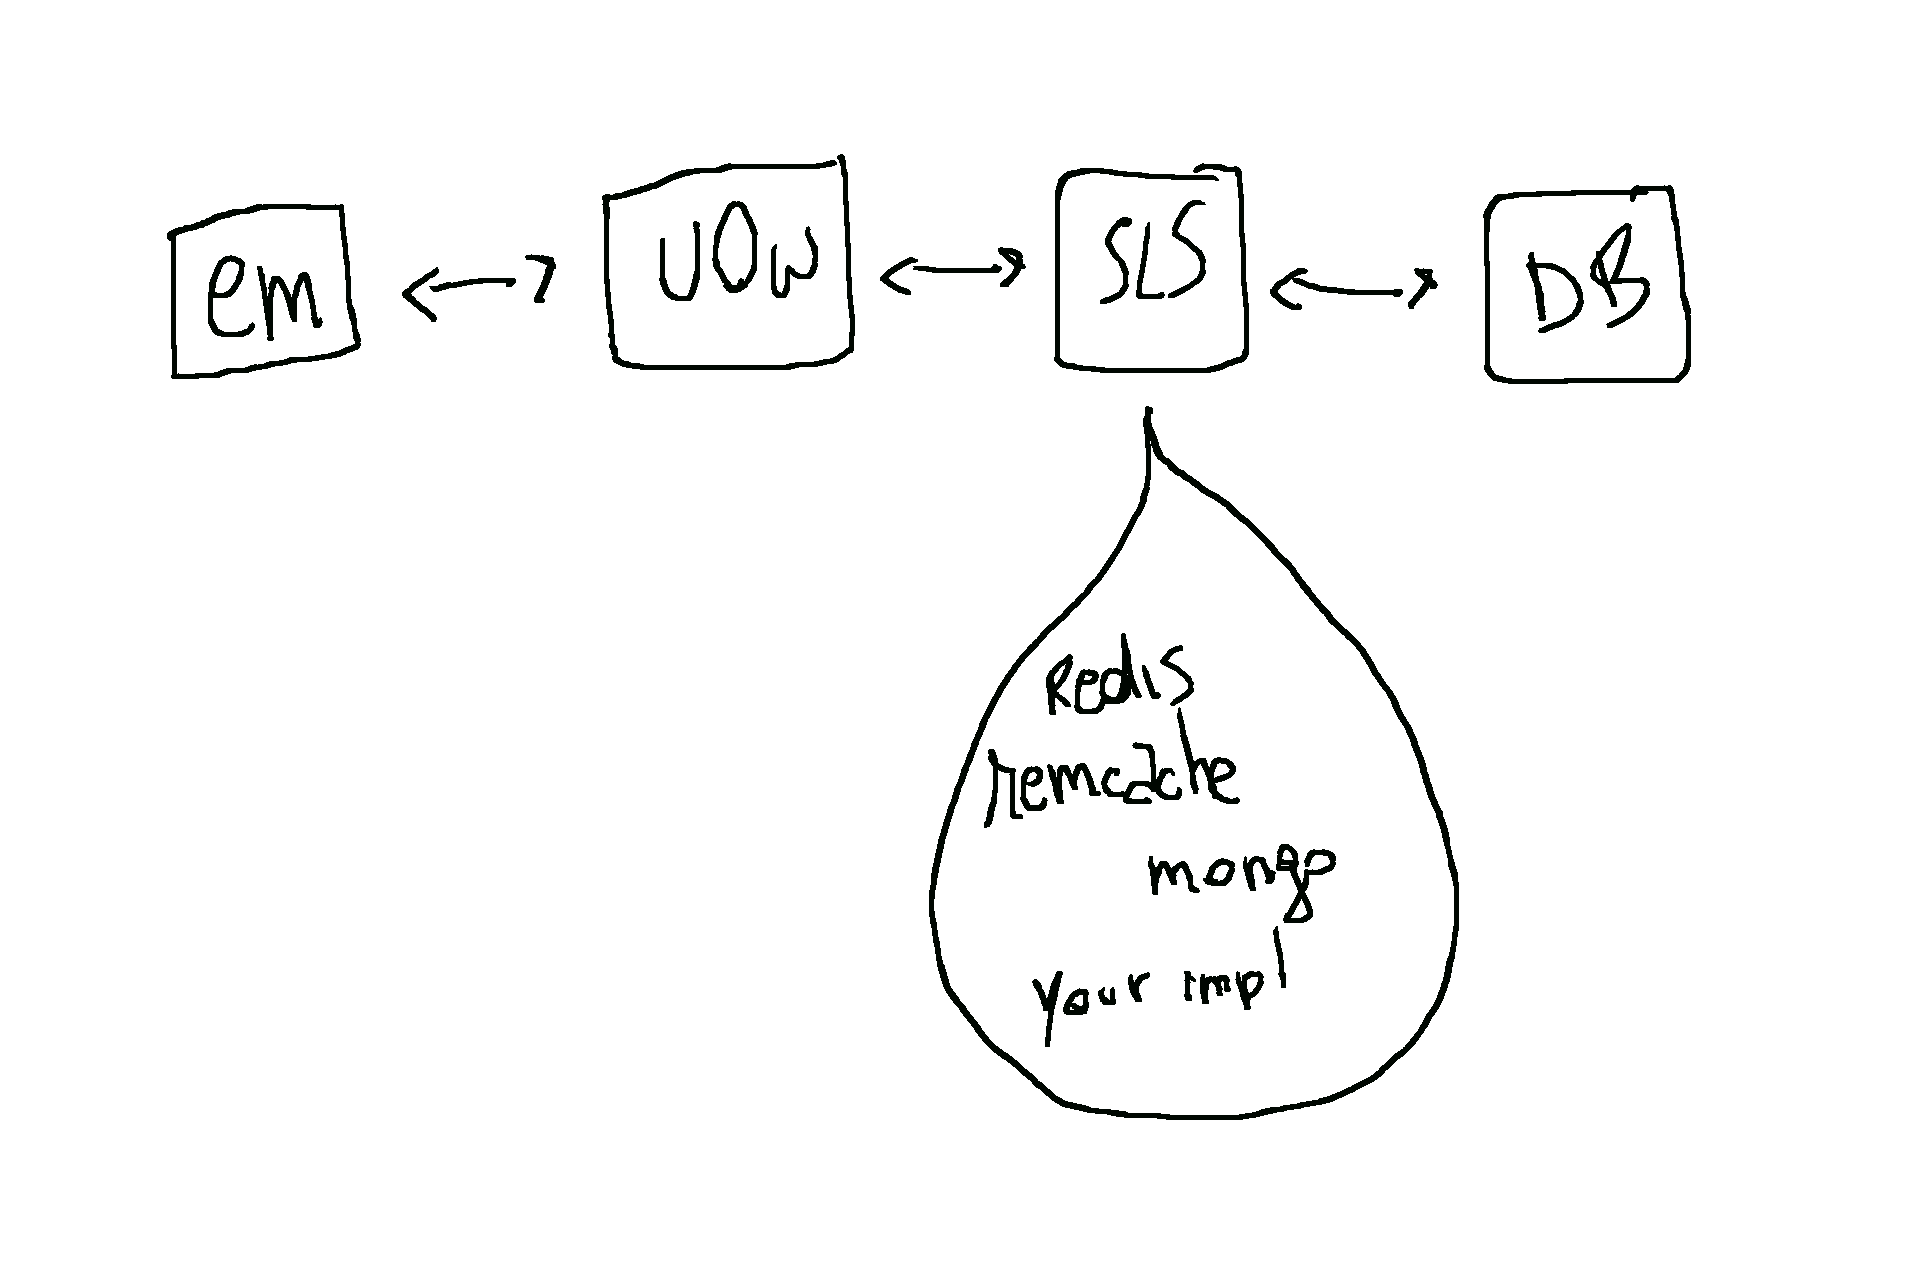 em
UOW
SLS
DB
Redis
memcache
mongo
your impl